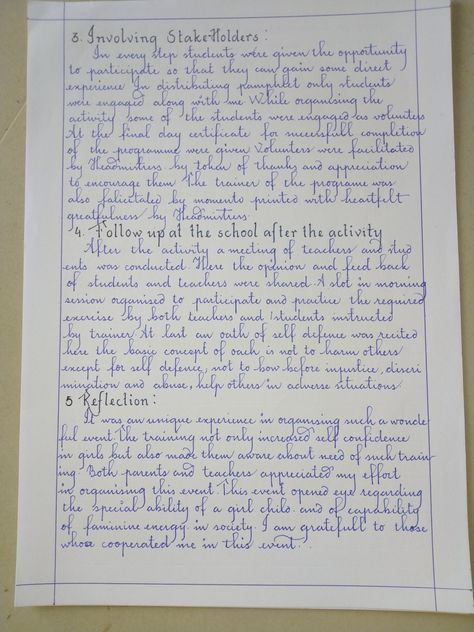 3. Involving StakeHolders:
In every step students were given the opportunity
to participate so that they can gain some direct
experience In distributing pamphlet only students
were engaged along with me While organising the
activity some of the students were engaged as volunteers
At the final day certificate for successfull completion
of the programme were given Volunters were facilitated
by Headmistress by token of thanks and appreciation
to encourage them The trainer of the programe was
also falicitated by momento printed with heartfelt
greatfulness by Headmistress
4. Follow up at the school after the activity
After the activity a meeting of teachers and stud
ents was conducted Here the opinion and feed back
of students and teachers were shared A slot in morning
session organised to participate and practice the required
exercise by both teachers and students instructed
by trainer At last an oath of self defence was recited
here the basic concept of oach is not to harm others
except for self defence, not to bow before injustice, discri
mination and abuse, help others in adverse situations
5 Reflection:
It was an unique experience in organising such a wonde
ful event. The training not only increased self confidence
in girls but also made them aware about need of such train
ing Both parents and teachers appreciated my effort
in organising this event. This event opened eye regarding
the special ability of a girl child and of capability
of faminine energy in society. I am gratefull to those
whose cooperated me in this event...